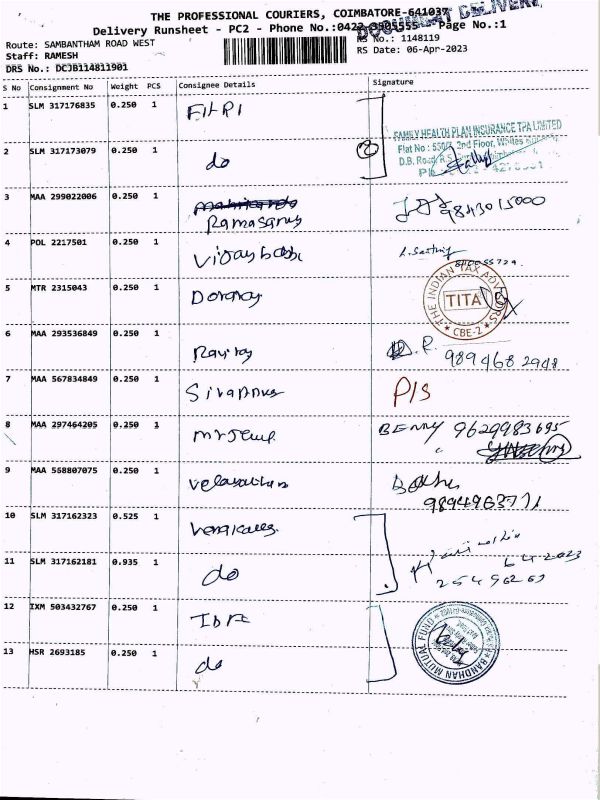 THE PROFESSIONAL COURIERS, COIMBATORE-641037
Delivery Runsheet - PC2 - Phone No.:0422-3505555 Page No.:1
DOCUMENT DELIVERY
Route: SAMBANTHAM ROAD WEST
RS No.: 1148119
Staff: RAMESH
RS Date: 06-Apr-2023
DRS No.: DCJB114811901
S No Consignment No Weight PCS Consignee Details Signature
1 SLM 317176835 0.250 1 FHPI
FAMILY HEALTH PLAN INSURANCE TPA LIMITED
2 SLM 317173079 0.250 1 do 2
Flat No : 2nd Floor,
D.B. Road, R.S.
3 MAA 299022006 0.250 1 Ramasamy 9843015000
4 POL 2217501 0.250 1 Vijay babu
5 MTR 2315043 0.250 1
THE INDIAN TAX ADVISORS
TITA
* CBE-2 *
6 MAA 293536849 0.250 1 Raviraj D.R.
9894682948
7 MAA 567834849 0.250 1 P/S
8 MAA 297464205 0.250 1 BENNY 9629983695
9 MAA 558807075 0.250 1 Velasathan
9894963771
10 SLM 317162323 0.525 1
11 SLM 317162181 0.935 1 do 6 4 2023
12 IXM 503432767 0.250 1
BANDHAN MUTUAL FUND
13 HSR 2693185 0.250 1 do